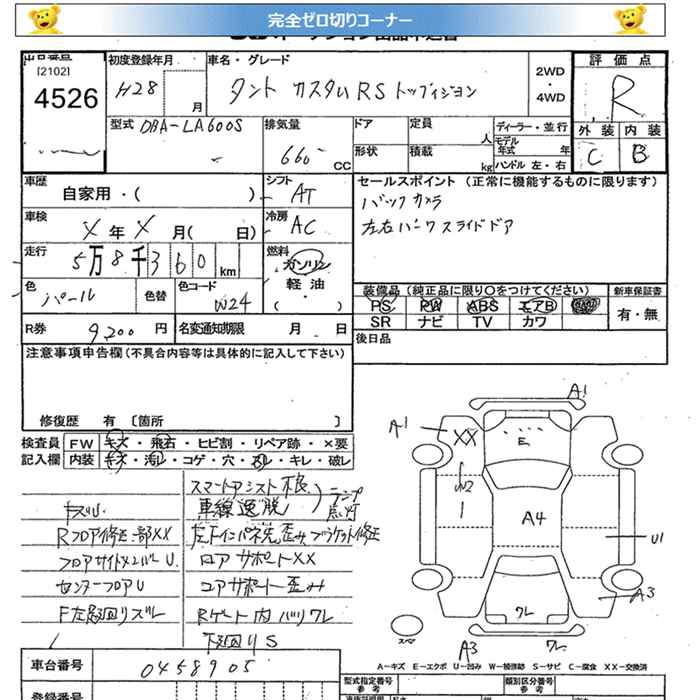 完全ゼロ切りコーナー
[2102]
4526
初度登録年月
H28
月
車名・グレード
タント カスタムRS トップエジション
2WD
・
4WD
評価点
R
型式 DBA-LA600S
排気量
660 CC
ドア
定員 人
ディーラー・並行
モデル年式 年
形状
積載 kg
ハンドル 左・右
外装
内装
C
B
車歴
自家用・( )
シフト
AT
セールスポイント(正常に機能するものに限ります)
バックカメラ
左右パワースライドドア
車検
X年X月( 日)
冷房
AC
走行
5万8千360km
燃料
ガソリン
軽油
・
( )
色
パール
色替
色コード
W24
装備品(純正品に限り○をつけてください)
新車保証書
PS PW ABS エアB
有・無
SR ナビ TV カワ
R券 9,200円
名変通知期限 月 日
後日品
注意事項申告欄(不具合内容等は具体的に記入して下さい)
修復歴 有〔箇所 〕
検査員 FW キズ・飛石・ヒビ割・リペア跡・×要
記入欄 内装 キズ・汚レ・コゲ・穴・スレ・キレ・破レ
スマートアシスト不良
車線逸脱
ランプ点灯
Rフロア修正 一部XX
左下インパネ先歪み ブラケット修正
フロアサイドメンバーU.
ロアサポートXX
センターフロアU
コアサポート歪み
F左廻りズレ
Rゲート内パリワレ
下廻りS
A1
A1
XX
E
W2
A4
U1
A3
ワレ
スペア
A3
ワレ
A-キズ E-エクボ U-凹み W-補修跡 S-サビ C-腐食 XX-交換済
車台番号
0458905
型式指定番号
参考
類別区分番号
参考
登録番号